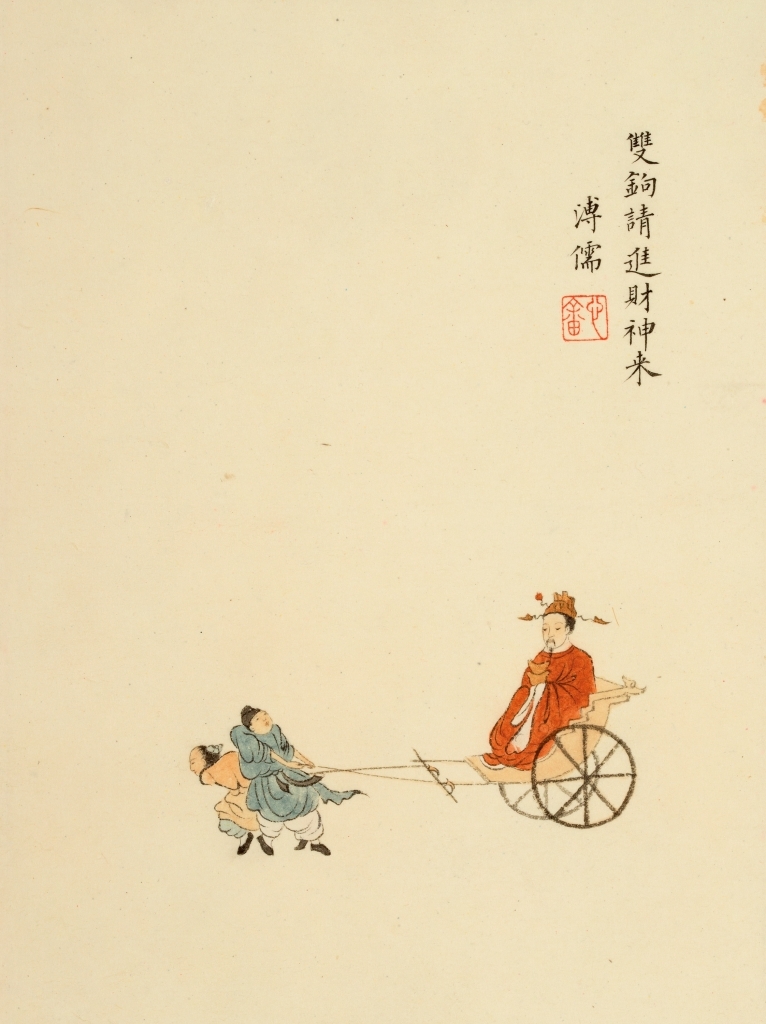 雙鉤請進財神来
溥儒
心畬